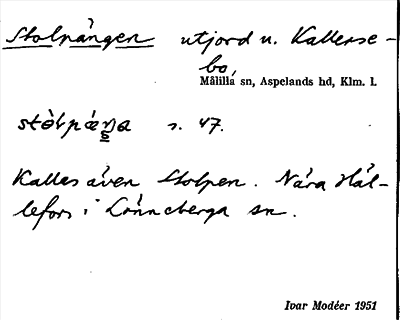 Stolpängen utjord u. Kallerse-
bo,
Målilla sn, Aspelands hd, Klm. l.
s. 47.
Kallas även Stolpen. Nära Häl-
lefors i Lönneberga sn.
Ivar Modéer 1951